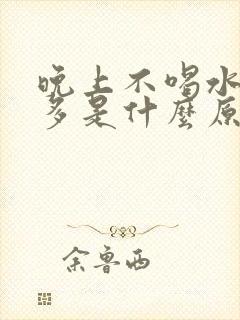 晚上不喝水
多是什麼原
余鲁西